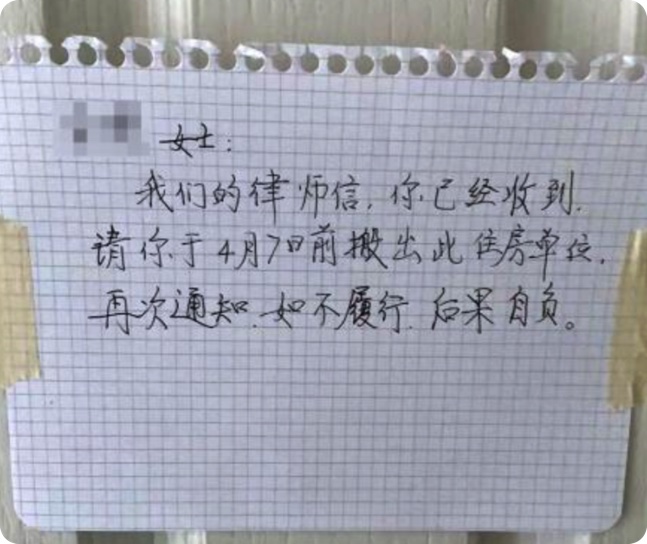 女士:
我们的律师信,你已经收到,
请你于4月7日前搬出此住房单位,
再次通知,如不履行,后果自负。